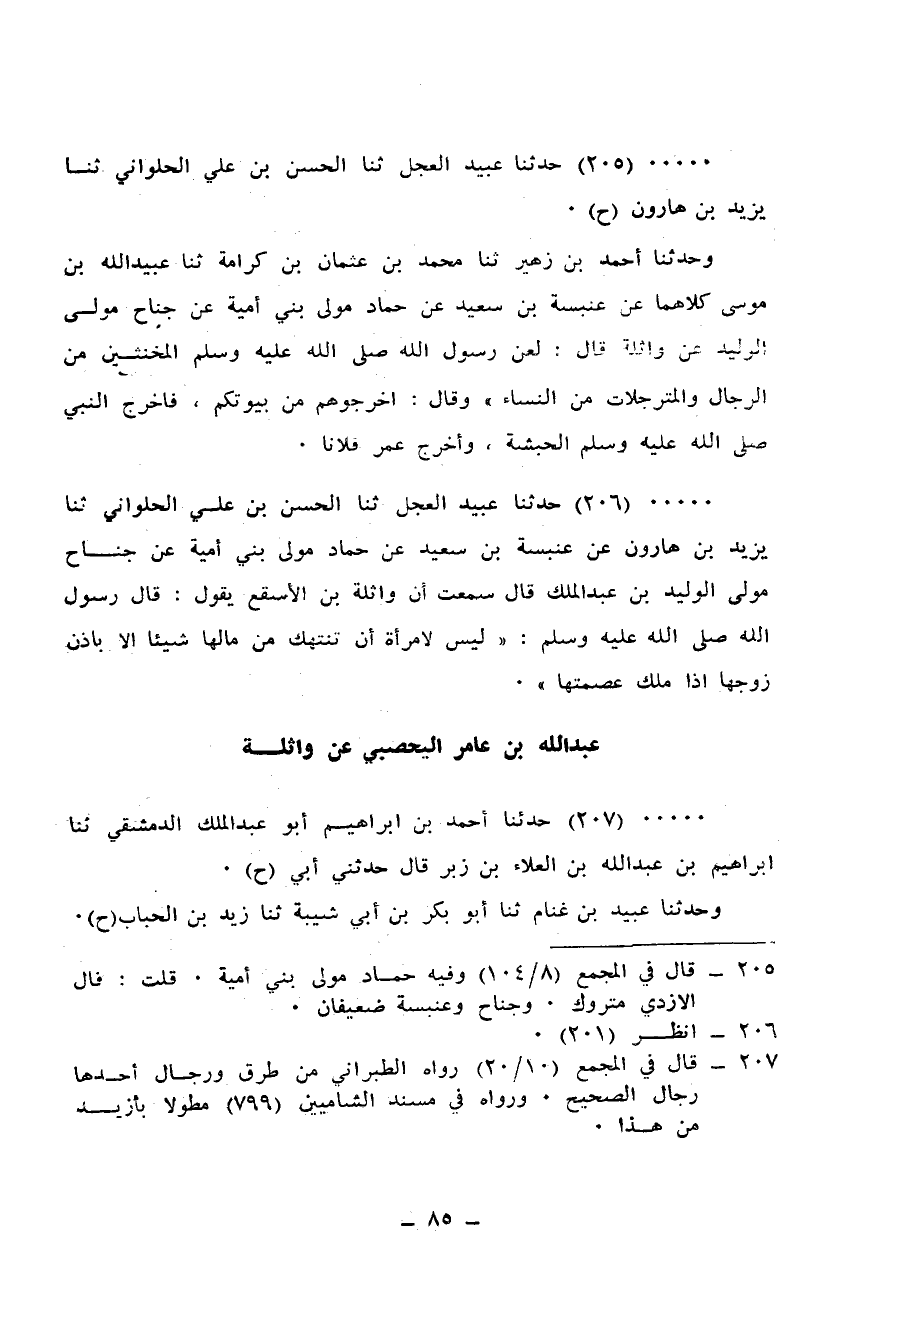 ..... (٢٠٥) حدثنا عبيد العجل ثنا الحسن بن علي الحلواني ثنا
يزيد بن هارون (ح) .
وحدثنا أحمد بن زهير ثنا محمد بن عثمان بن كرامة ثنا عبيدالله بن
موسى كلاهما عن عنبسة بن سعيد عن حماد مولى بني أمية عن جناح مولى
الوليد عن واثلة قال : لعن رسول الله صلى الله عليه وسلم المخنثين من
الرجال والمترجلات من النساء » وقال : اخرجوهم من بيوتكم ، فاخرج النبي
صلى الله عليه وسلم الحبشة ، وأخرج عمر فلانا .
..... (٢٠٦) حدثنا عبيد العجل ثنا الحسن بن علي الحلواني ثنا
يزيد بن هارون عن عنبسة بن سعيد عن حماد مولى بني أمية عن جناح
مولى الوليد بن عبدالملك قال سمعت أن واثلة بن الأسقع يقول : قال رسول
الله صلى الله عليه وسلم : « ليس لامرأة أن تنتهك من مالها شيئا الا باذن
زوجها اذا ملك عصمتها » .
عبدالله بن عامر اليحصبي عن واثلة
..... (٢٠٧) حدثنا أحمد بن ابراهيم أبو عبدالملك الدمشقي ثنا
ابراهيم بن عبدالله بن العلاء بن زبر قال حدثني أبي (ح) .
وحدثنا عبيد بن غنام ثنا أبو بكر بن أبي شيبة ثنا زيد بن الحباب(ح).
٢٠٥ ــ قال في المجمع (١٠٤/٨) وفيه حماد مولى بني أمية . قلت : قال
الازدي متروك . وجناح وعنبسة ضعيفان .
٢٠٦ ــ انظر (٢٠١) .
٢٠٧ ــ قال في المجمع (٢٠/١٠) رواه الطبراني من طرق ورجال أحدها
رجال الصحيح . ورواه في مسند الشاميين (٧٩٩) مطولا بأزيد
من هذا .
ــ ٨٥ ــ